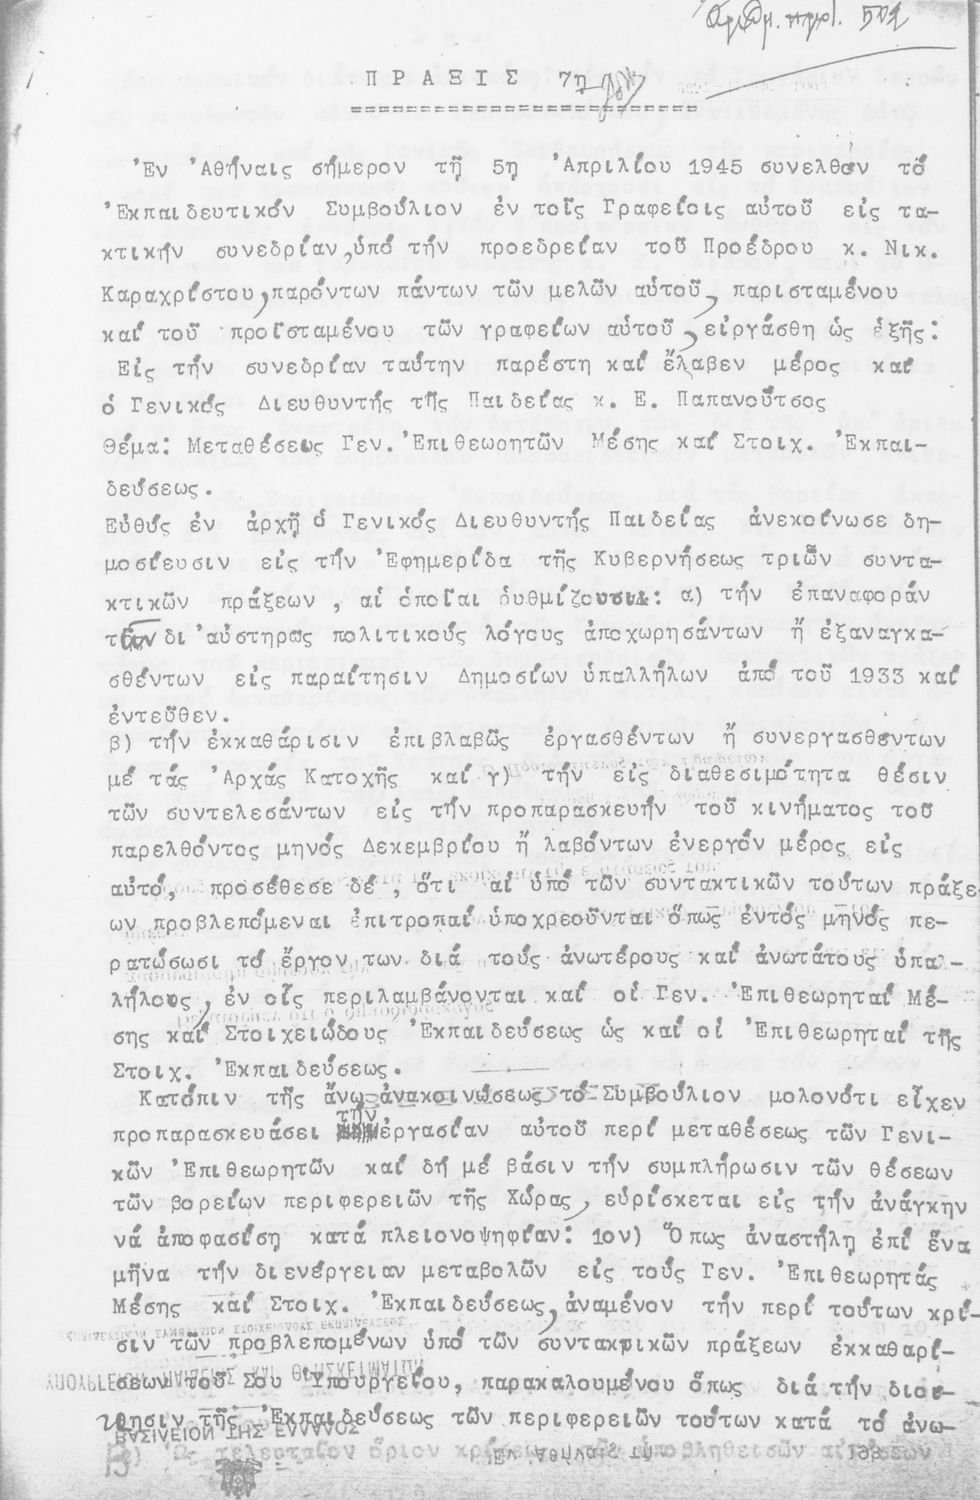 Ἀριθμ. πρωτ. 502
ΠΡΑΞΙΣ 7η
Ἐν Ἀθήναις σήμερον τῇ 5η Ἀπριλίου 1945 συνελθόν τό
Ἐκπαιδευτικόν Συμβούλιον ἐν τοῖς Γραφείοις αὐτοῦ εἰς τα-
κτικήν συνεδρίαν, ὑπό τήν προεδρείαν τοῦ Προέδρου κ. Νικ.
Καραχρίστου, παρόντων πάντων τῶν μελῶν αὐτοῦ, παρισταμένου
καί τοῦ προϊσταμένου τῶν γραφείων αὐτοῦ, εἰργάσθη ὡς ἑξῆς:
Εἰς τήν συνεδρίαν ταύτην παρέστη καί ἔλαβεν μέρος καί
ὁ Γενικός Διευθυντής τῆς Παιδείας κ. Ε. Παπανοῦτσος
Θέμα: Μεταθέσεως Γεν. Ἐπιθεωρητῶν Μέσης καί Στοιχ. Ἐκπαι-
δεύσεως.
Εὐθύς ἐν ἀρχῇ ὁ Γενικός Διευθυντής Παιδείας ἀνεκοίνωσε δη-
μοσίευσιν εἰς τήν Ἐφημερίδα τῆς Κυβερνήσεως τριῶν συντα-
κτικῶν πράξεων, αἱ ὁποῖαι ρυθμίζουσι: α) τήν ἐπαναφοράν
τῶν δι' αὐστηρῶς πολιτικούς λόγους ἀποχωρησάντων ἤ ἐξαναγκα-
σθέντων εἰς παραίτησιν Δημοσίων ὑπαλλήλων ἀπό τοῦ 1933 καί
ἐντεῦθεν.
β) τήν ἐκκαθάρισιν ἐπιβλαβῶς ἐργασθέντων ἤ συνεργασθεντων
μέ τάς Ἀρχάς Κατοχῆς καί γ) τήν εἰς διαθεσιμότητα θέσιν
τῶν συντελεσάντων εἰς τήν προπαρασκευήν τοῦ κινήματος τοῦ
παρελθόντος μηνός Δεκεμβρίου ἤ λαβόντων ἐνεργόν μέρος εἰς
αὐτό, προσέθεσε δέ, ὅτι αἱ ὑπό τῶν συντακτικῶν τούτων πράξε-
ων προβλεπόμεναι ἐπιτροπαί ὑποχρεοῦνται ὅπως ἐντός μηνός πε-
ρατώσωσι τό ἔργον των διά τούς ἀνωτέρους καί ἀνωτάτους ὑπαλ-
λήλους, ἐν οἷς περιλαμβάνονται καί οἱ Γεν. Ἐπιθεωρηταί Μέ-
σης καί Στοιχειώδους Ἐκπαιδεύσεως ὡς καί οἱ Ἐπιθεωρηταί τῆς
Στοιχ. Ἐκπαιδεύσεως.
Κατόπιν τῆς ἄνω ἀνακοινώσεως τό Συμβούλιον μολονότι εἶχεν
προπαρασκευάσει τήν ἐργασίαν αὐτοῦ περί μεταθέσεως τῶν Γενι-
κῶν Ἐπιθεωρητῶν καί δή μέ βάσιν τήν συμπλήρωσιν τῶν θέσεων
τῶν βορείων περιφερειῶν τῆς Χώρας, εὑρίσκεται εἰς τήν ἀνάγκην
νά ἀποφασίσῃ κατά πλειονοψηφίαν: 1ον) Ὅπως ἀναστήλη ἐπί ἕνα
μῆνα τήν διενέργειαν μεταβολῶν εἰς τούς Γεν. Ἐπιθεωρητάς
Μέσης καί Στοιχ. Ἐκπαιδεύσεως, ἀναμένον τήν περί τούτων κρί-
σιν τῶν προβλεπομένων ὑπό τῶν συντακτικῶν πράξεων ἐκκαθαρί-
σεων τοῦ Σου Ὑπουργείου, παρακαλουμένου ὅπως διά τήν διοί-
κησιν τῆς Ἐκπαιδεύσεως τῶν περιφερειῶν τούτων κατά τό ἀνω-